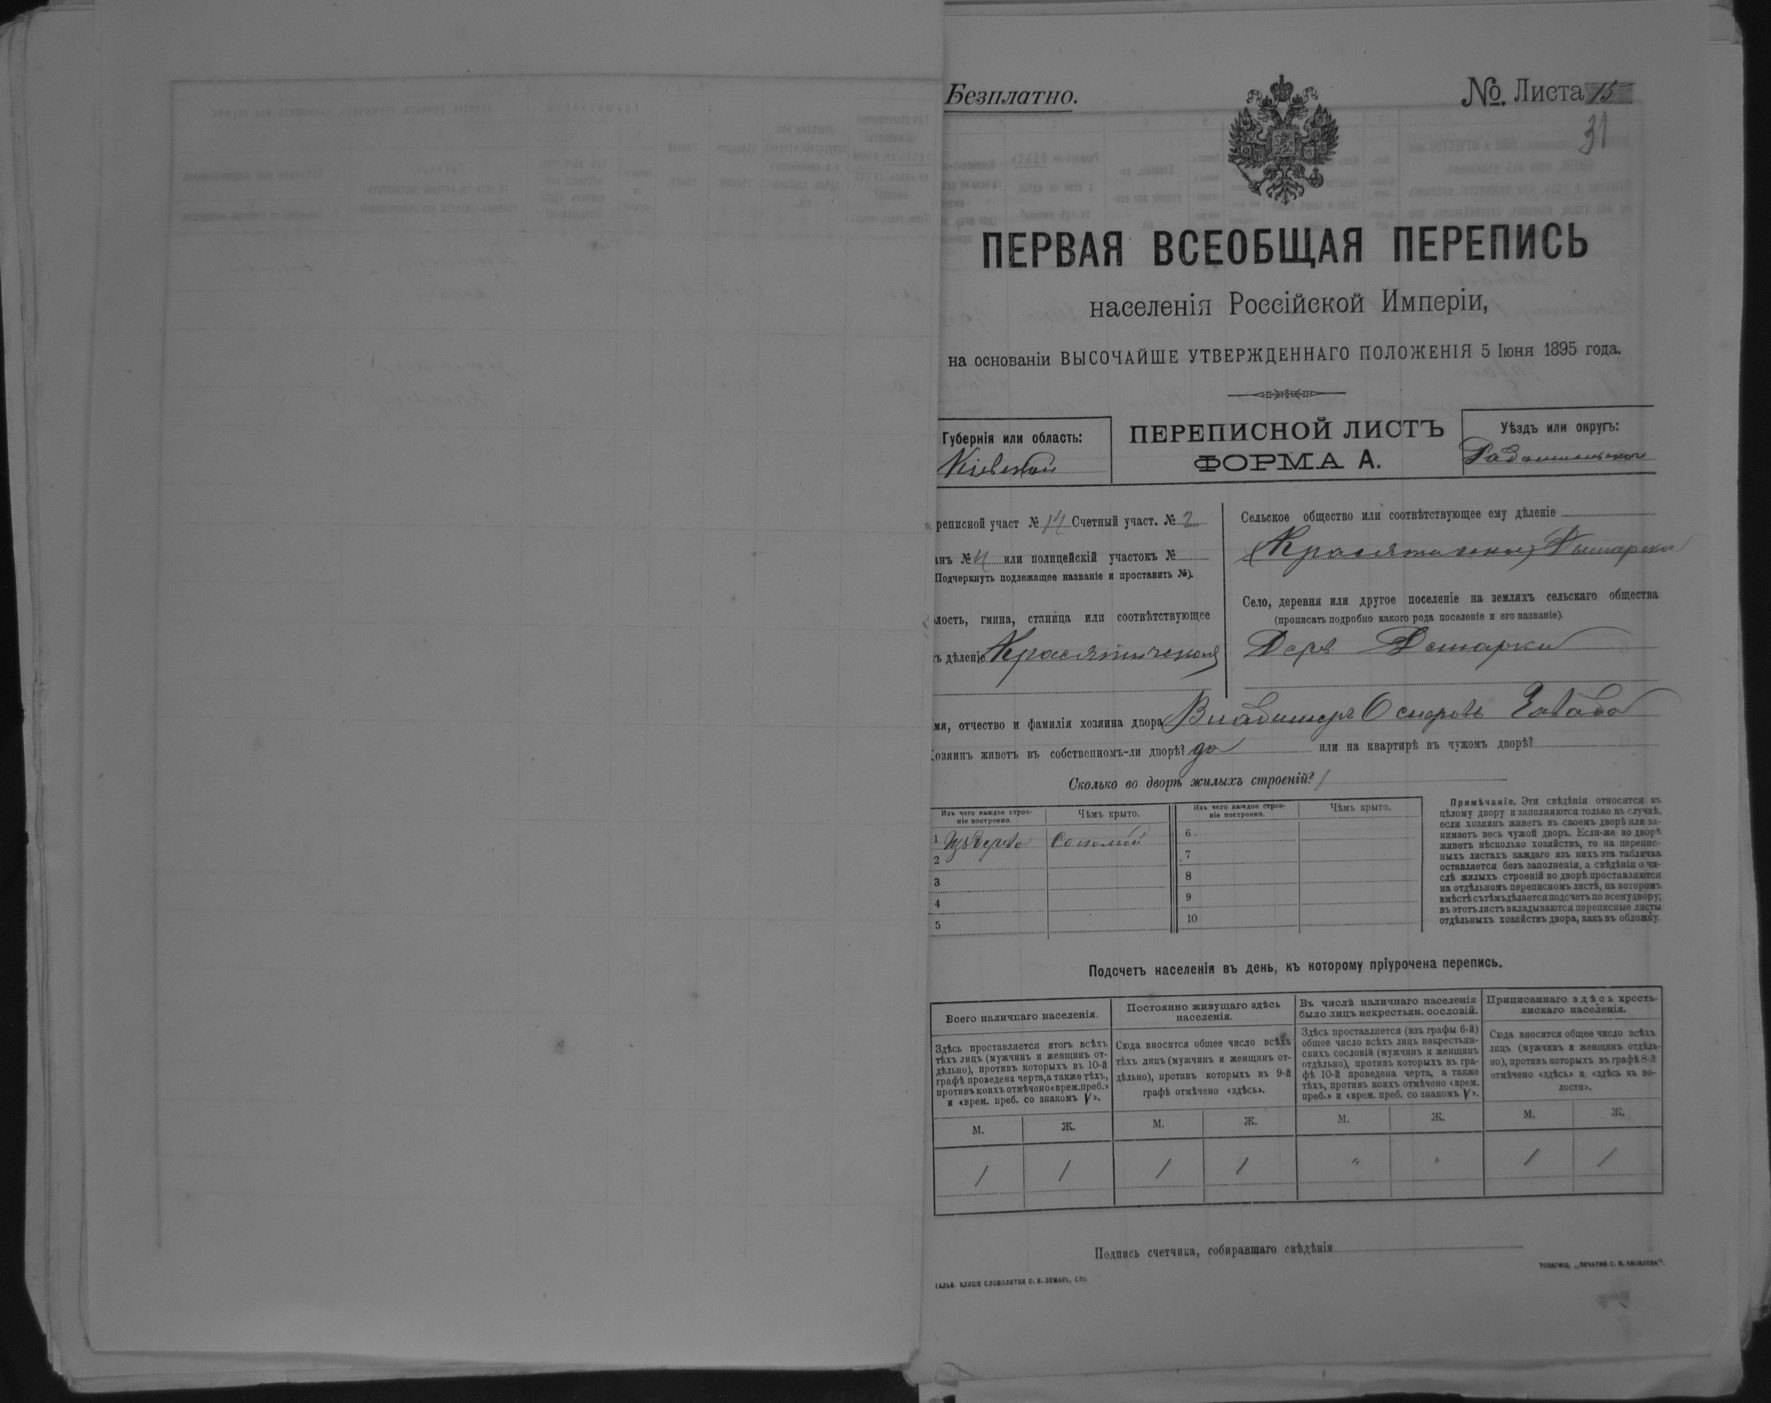 Безплатно.
№. Листа 15
31
ПЕРВАЯ ВСЕОБЩАЯ ПЕРЕПИСЬ
населенія Россійской Имперіи,
на основаніи ВЫСОЧАЙШЕ УТВЕРЖДЕННАГО ПОЛОЖЕНІЯ 5 Іюня 1895 года.
Губернія или область:
Кіевской
ПЕРЕПИСНОЙ ЛИСТЪ
ФОРМА А.
Уѣздъ или округъ:
реписной участ № 14 Счетный участ. № 2
анъ № 4 или полицейскій участокъ №
Подчеркнуть подлежащее названіе и проставить №).
лость, гмина, станица или соотвѣтствующее
ъ дѣленіе Красятичская
Сельское общество или соотвѣтствующее ему дѣленіе
Село, деревня или другое поселеніе на земляхъ сельскаго общества
(прописать подробно какого рода поселеніе и его названіе).
Дерв
мя, отчество и фамилія хозяина двора Владимеръ
озяинъ живетъ въ собственномъ-ли дворѣ? да или на квартирѣ въ чужомъ дворѣ?
Сколько во дворѣ жилыхъ строеній? 1
Изъ чего каждое строе-
ніе построено.
Чѣмъ крыто.
Изъ чего каждое строе-
ніе построено.
Чѣмъ крыто.
1 Соломой
2
3
4
5
6
7
8
9
10
Примѣчаніе. Эти свѣдѣнія относятся къ
цѣлому двору и заполняются только въ случаѣ,
если хозяинъ живетъ въ своемъ дворѣ или за-
нимаетъ весь чужой дворъ. Если-же во дворѣ
живетъ нѣсколько хозяйствъ, то на перепис-
ныхъ листахъ каждаго изъ нихъ эта табличка
оставляется безъ заполненія, а свѣдѣнія о чи-
слѣ жилыхъ строеній во дворѣ проставляются
на отдѣльномъ переписномъ листѣ, на которомъ
вмѣстѣ съ тѣмъ дѣлается подсчетъ по всему двору;
въ этотъ листъ вкладываются переписные листы
отдѣльныхъ хозяйствъ двора, какъ въ обложку.
Подсчетъ населенія въ день, къ которому пріурочена перепись.
Всего наличнаго населенія.
Здѣсь проставляется итогъ всѣхъ
тѣхъ лицъ (мужчинъ и женщинъ от-
дѣльно), противъ которыхъ въ 10-й
графѣ проведена черта, а также тѣхъ,
противъ коихъ отмѣчено «врем. преб.»
и «врем. преб. со знакомъ V».
Постоянно живущаго здѣсь
населенія.
Сюда вносится общее число всѣхъ
тѣхъ лицъ (мужчинъ и женщинъ от-
дѣльно), противъ которыхъ въ 9-й
графѣ отмѣчено «здѣсь».
Въ числѣ наличнаго населенія
было лицъ некрестьян. сословій.
Здѣсь проставляется (изъ графы 6-й)
общее число всѣхъ лицъ некрестьян-
скихъ сословій (мужчинъ и женщинъ
отдѣльно), противъ которыхъ въ гра-
фѣ 10-й проведена черта, а также
тѣхъ, противъ коихъ отмѣчено «врем.
преб.» и «врем. преб. со знакомъ V».
Приписаннаго здѣсь кресть-
янскаго населенія.
Сюда вносится общее число всѣхъ
лицъ (мужчинъ и женщинъ отдѣль-
но), противъ которыхъ въ графѣ 8-й
отмѣчено «здѣсь» и «здѣсь въ во-
лости».
М. Ж. М. Ж. М. Ж. М. Ж.
1 1 1 1 " " 1 1
Подпись счетчика, собиравшаго свѣдѣнія